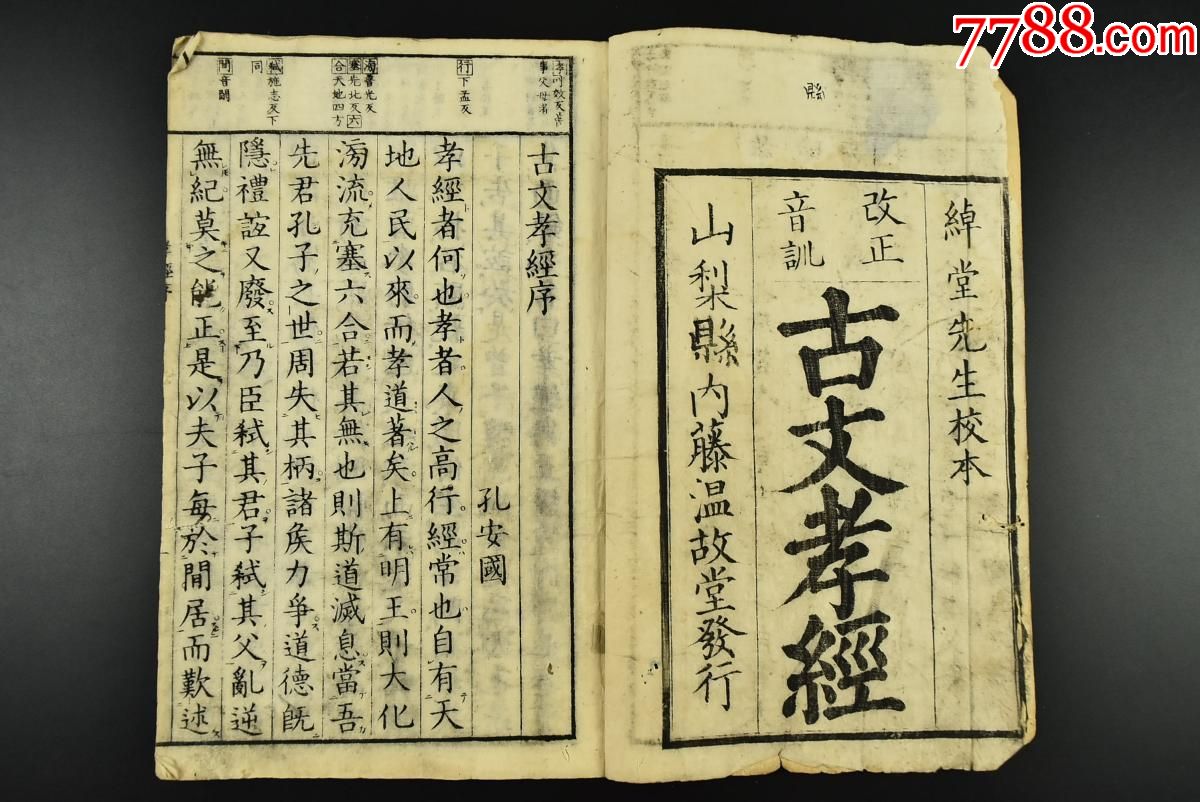 7788.com
縣
綽堂先生校本
改正
音訓
古文孝經
山梨縣内藤温故堂發行
事父母者
行下孟反
滂普光反
塞先北反六
合天地四方
弑施志反下
同
間音閑
古文孝經序
孔安國
孝經者何也孝者人之高行經常也自有天
地人民以來而孝道著矣上有明王則大化
滂流充塞六合若其無也則斯道滅息當吾
先君孔子之世周失其柄諸矦力爭道德旣
隱禮誼又廢至乃臣弑其君子弑其父亂逆
無紀莫之能正是以夫子每於閒居而歎述